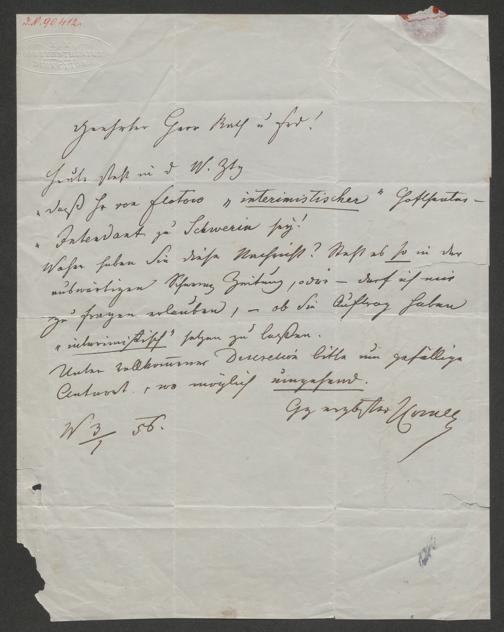 I.N. 90412.
Geehrter Herr Rath u Frd!
Heute steht in d W. Ztg
„daß Hr von Flotow „interimistischer“ Hoftheater-
„Intendant zu Schwerin sey!
Woher haben Sie diese Nachricht? Steht es so in der
auswärtigen Zeitung, oder – darf ich mir
zu fragen erlauben, – ob Sie Auftrag haben
„interimistisch“ setzen zu laßen.
Unter vollkommener Discretion bitte um gefällige
Antwort, wo möglich umgehend.
Ergebenster
W 3/1 56.